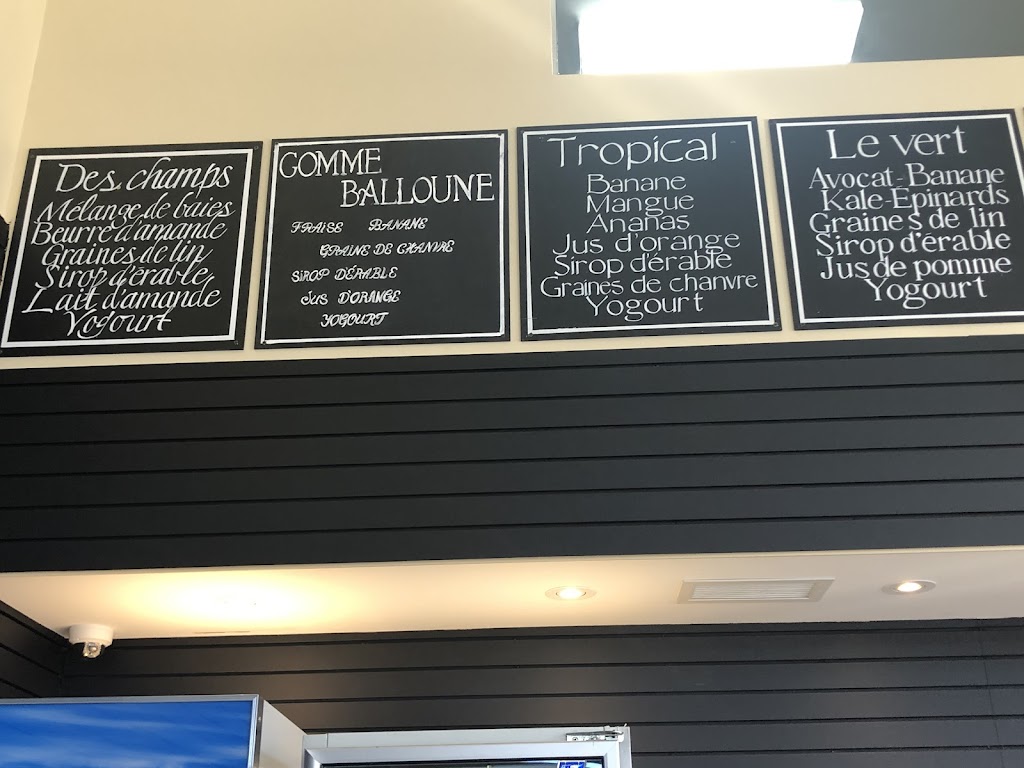 Des champs
Mélange de baies
Beurre d'amande
Graines de lin
Sirop d'érable
Lait d'amande
Yogourt
GOMME
BALLOUNE
FRAISE BANANE
GRAINE DE CHANVRE
SIROP D'ÉRABLE
JUS D'ORANGE
YOGOURT
Tropical
Banane
Mangue
Ananas
Jus d'orange
Sirop d'érable
Graines de chanvre
Yogourt
Le vert
Avocat-Banane
Kale-Épinards
Graines de lin
Sirop d'érable
Jus de pomme
Yogourt